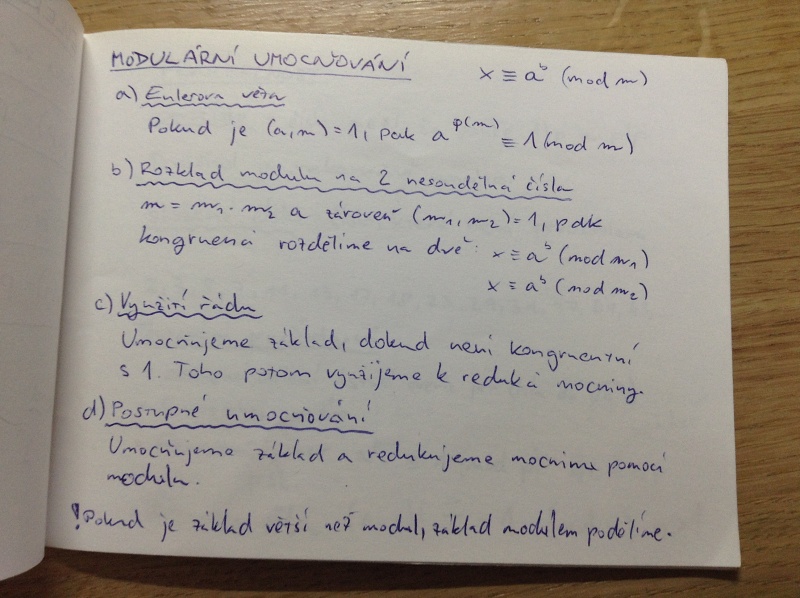 MODULÁRNÍ UMOCŇOVÁNÍ x ≡ a^b (mod m)
a) Eulerova věta
Pokud je (a,m)=1, pak a^φ(m) ≡ 1 (mod m)
b) Rozklad modulu na 2 nesoudělná čísla
m = m₁·m₂ a zároveň (m₁,m₂)=1, pak
kongruenci rozdělíme na dvě: x ≡ a^b (mod m₁)
x ≡ a^b (mod m₂)
c) Využití řádu
Umocňujeme základ, dokud není kongruentní
s 1. Toho potom využijeme k redukci mocniny.
d) Postupné umocňování
Umocňujeme základ a redukujeme mocninu pomocí
modulu.
! Pokud je základ větší než modul, základ modulem podělíme.